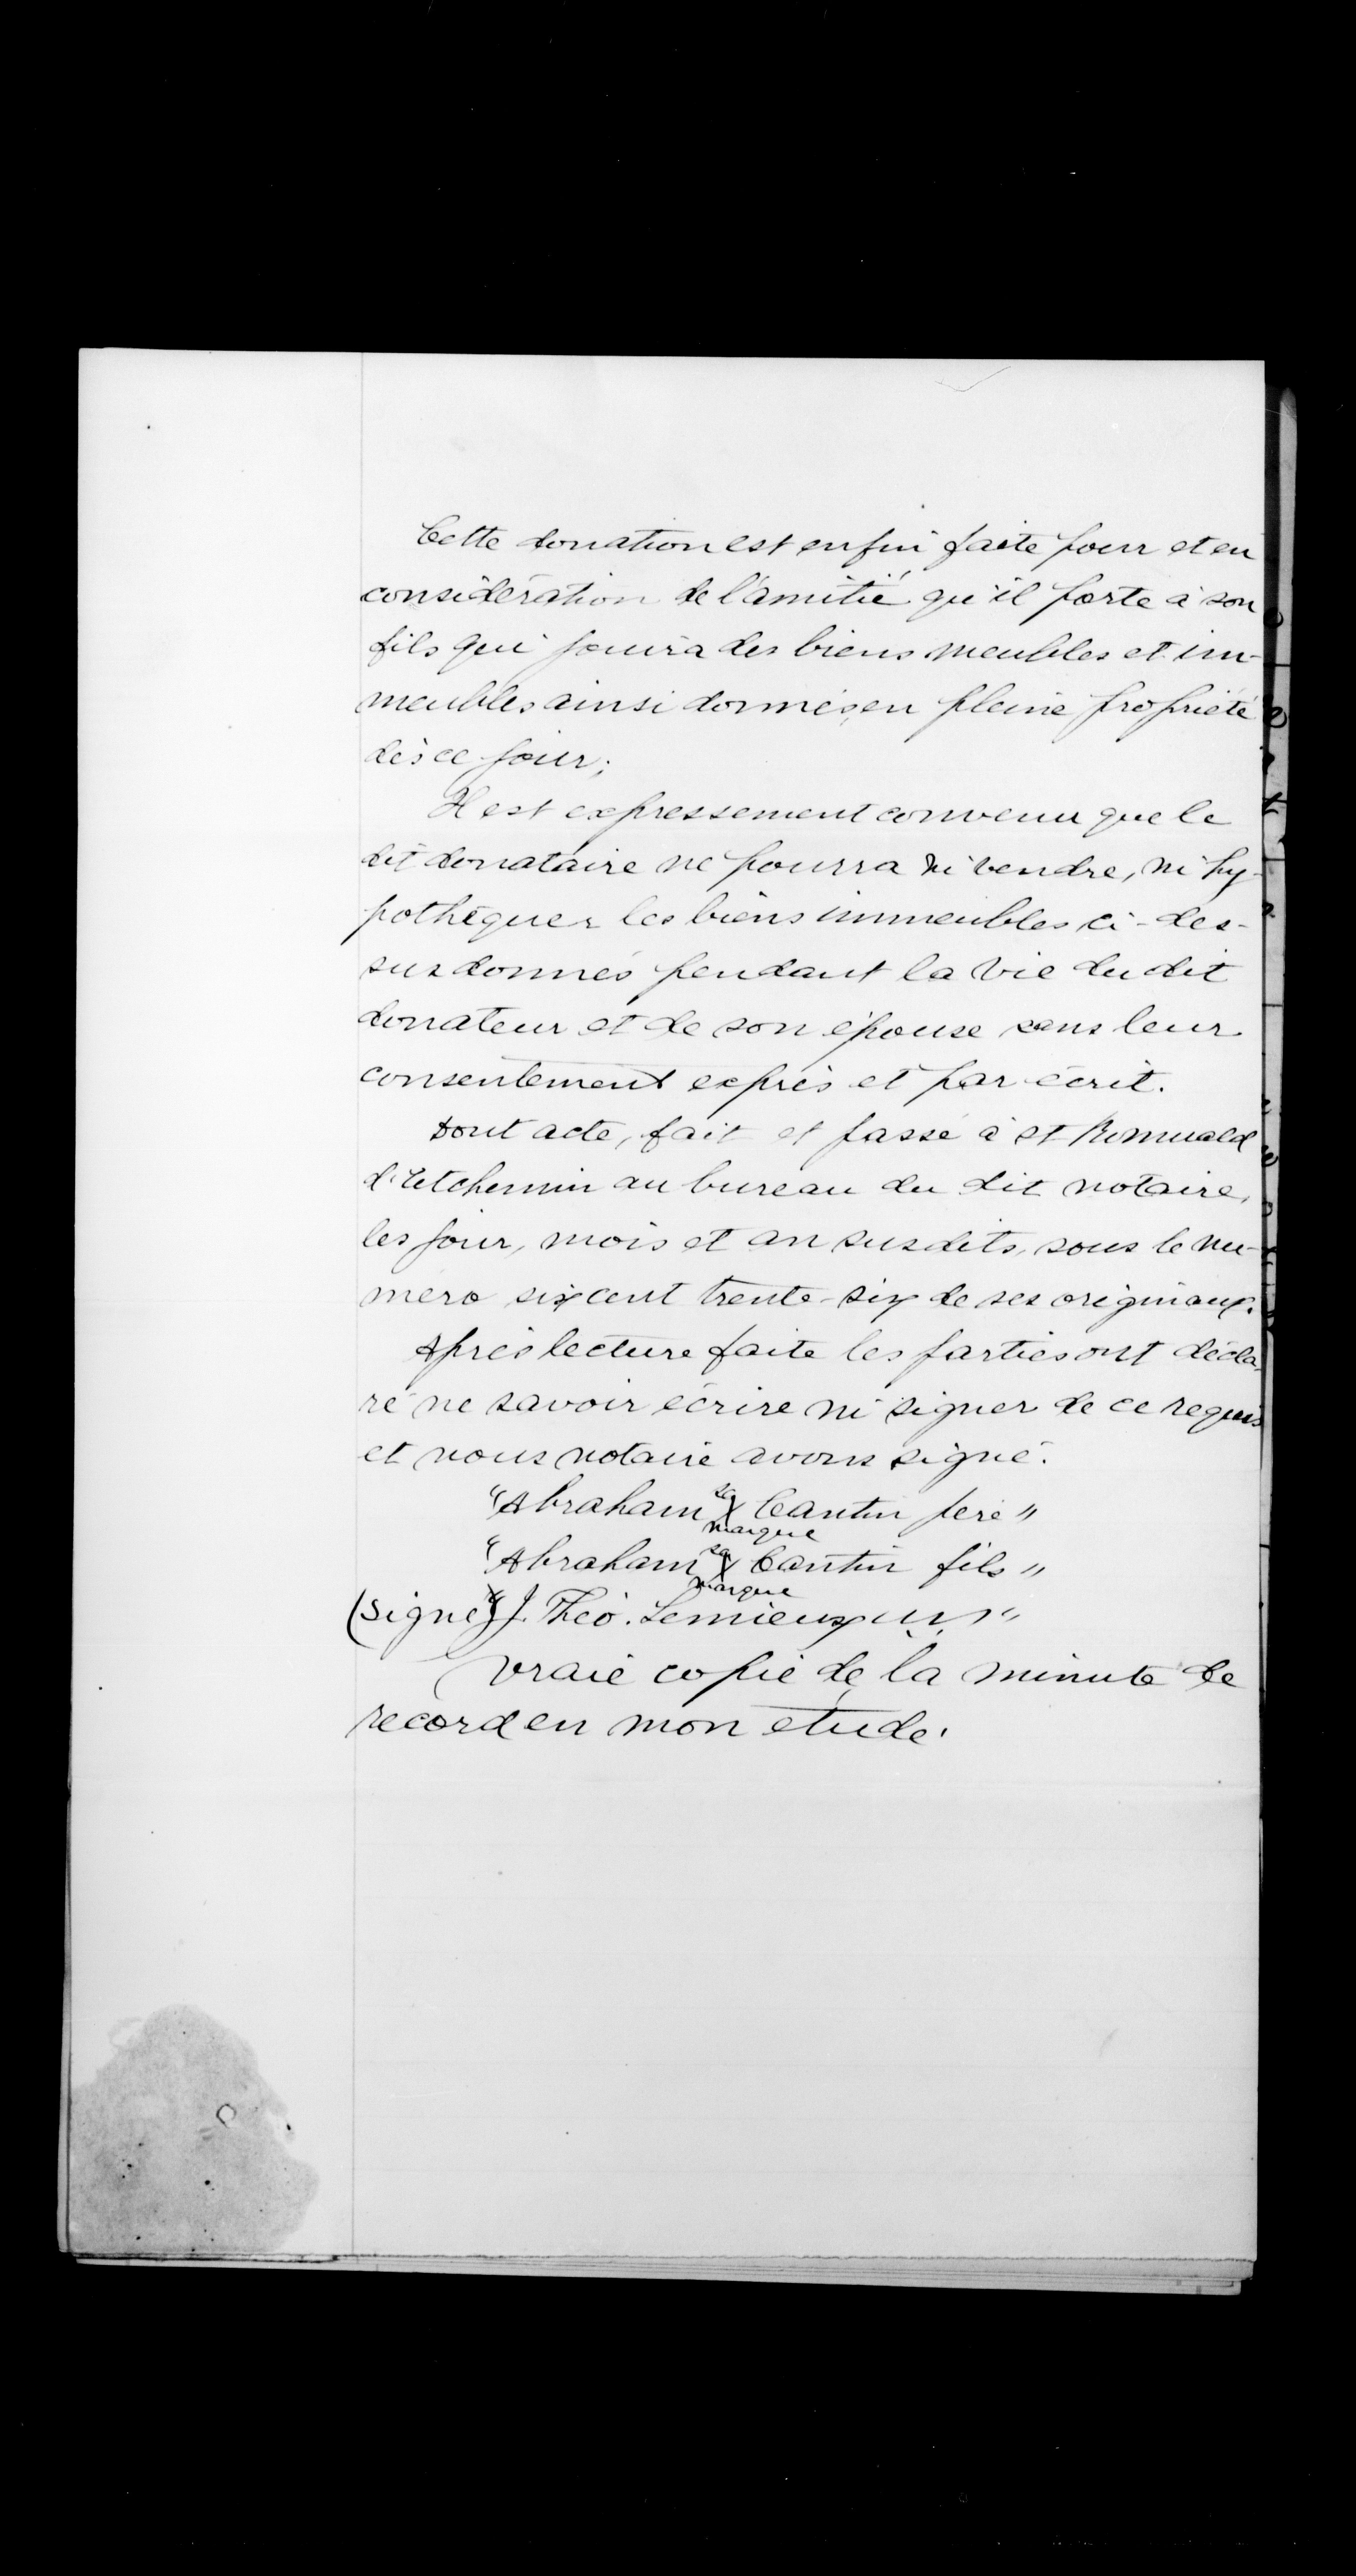 Cette donation est enfin faite pour et en
considération de l'amitié qu'il porte à son
fils qui jouira des biens meubles et im-
meubles ainsi donnés en pleine propriété
dès ce jour;
Il est expressement convenu que le
dit donataire ne pourra ni vendre, ni hy-
pothéquer les biens immeubles ci-des-
sus donnés pendant la vie du dit
donateur et de son épouse sans leur
consentement exprès et par écrit.
Dont acte, fait et passé à St Romuald
d'Etchemin au bureau du dit notaire,
les jour, mois et an susdits, sous le nu-
mero six cent trente-six de ses originaux.
Après lecture faite les parties ont décla-
ré ne savoir écrire ni signer de ce requis
et nous notaire avons signé.
"Abraham sa X marque Cantin père"
"Abraham sa X marque Cantin fils"
(signé) "J. Théo. Lemieux N.P."
Vraie copie de la minute de
record en mon étude.